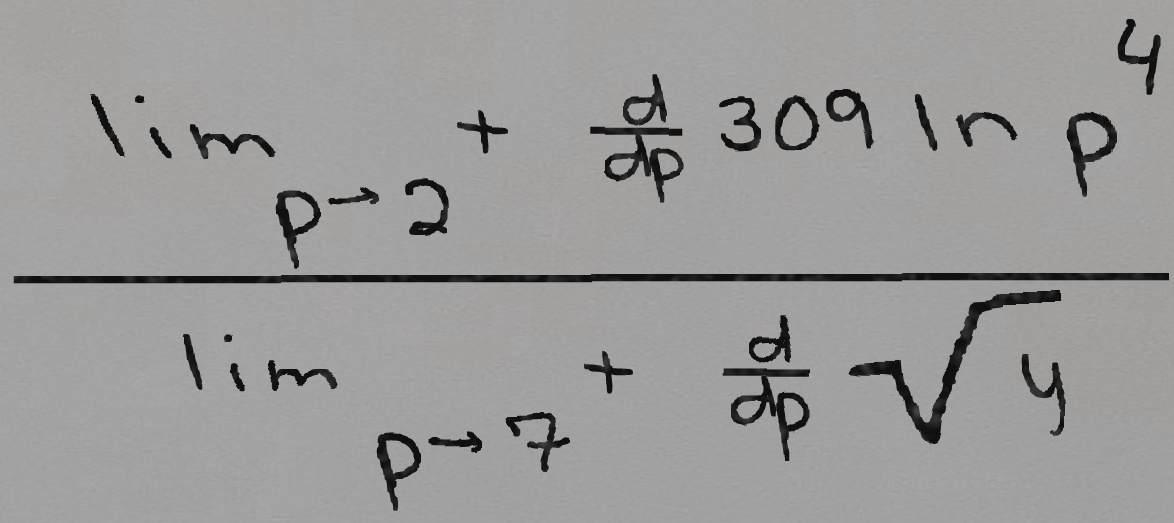 lim p→2⁺ d/dp 309 ln p⁴
lim p→7⁺ d/dp √y